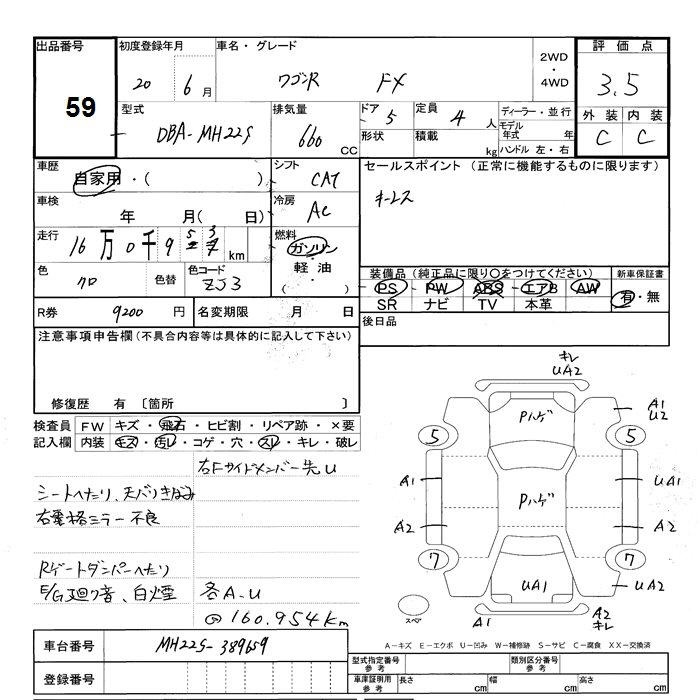 出品番号 初度登録年月 車名・グレード 2WD・4WD 評価点
59 20 6月 ワゴR FX 3.5
型式 排気量 ドア 5 定員 4人 ディーラー・並行 外装 内装
DBA-MH22S 660 CC 形状 積載 kg モデル年式 年 C C
ハンドル 左・右
車歴 自家用・( ) シフト CAT セールスポイント (正常に機能するものに限ります)
車検 年 月( 日) 冷房 AC キーレス
走行 16万0千9 5 3 km 燃料 ガソリン・軽油・( )
色 クロ 色替 色コード ZJ3
装備品 (純正品に限り○をつけてください) 新車保証書
PS・PW・ABS・エアB・AW 有・無
SR ナビ TV 本革
R券 9200円 名変期限 月 日 後日品
注意事項申告欄 (不具合内容等は具体的に記入して下さい)
修復歴 有 〔箇所 〕
検査員 FW キズ・飛石・ヒビ割・リペア跡・×要
記入欄 内装 キズ・汚レ・コゲ・穴・スレ・キレ・破レ
右Fサイドメンバー先U
シートへたり、天バリきばみ
右電格ミラー不良
Rゲートダンパーへたり
E/G廻り音、白煙 各A.U
@160.954km
キレ
UA2
Pハゲ A1
U2
5 5
A1 Pハゲ UA1
A2 A2
7 7
UA1 UA2
スペア A1 A2
キレ
A-キズ E-エクボ U-凹み W-補修跡 S-サビ C-腐食 XX-交換済
車台番号 MH22S-389659
登録番号
型式指定番号 参考 類別区分番号 参考
車庫証明用 参考 長さ cm 幅 cm 高さ cm